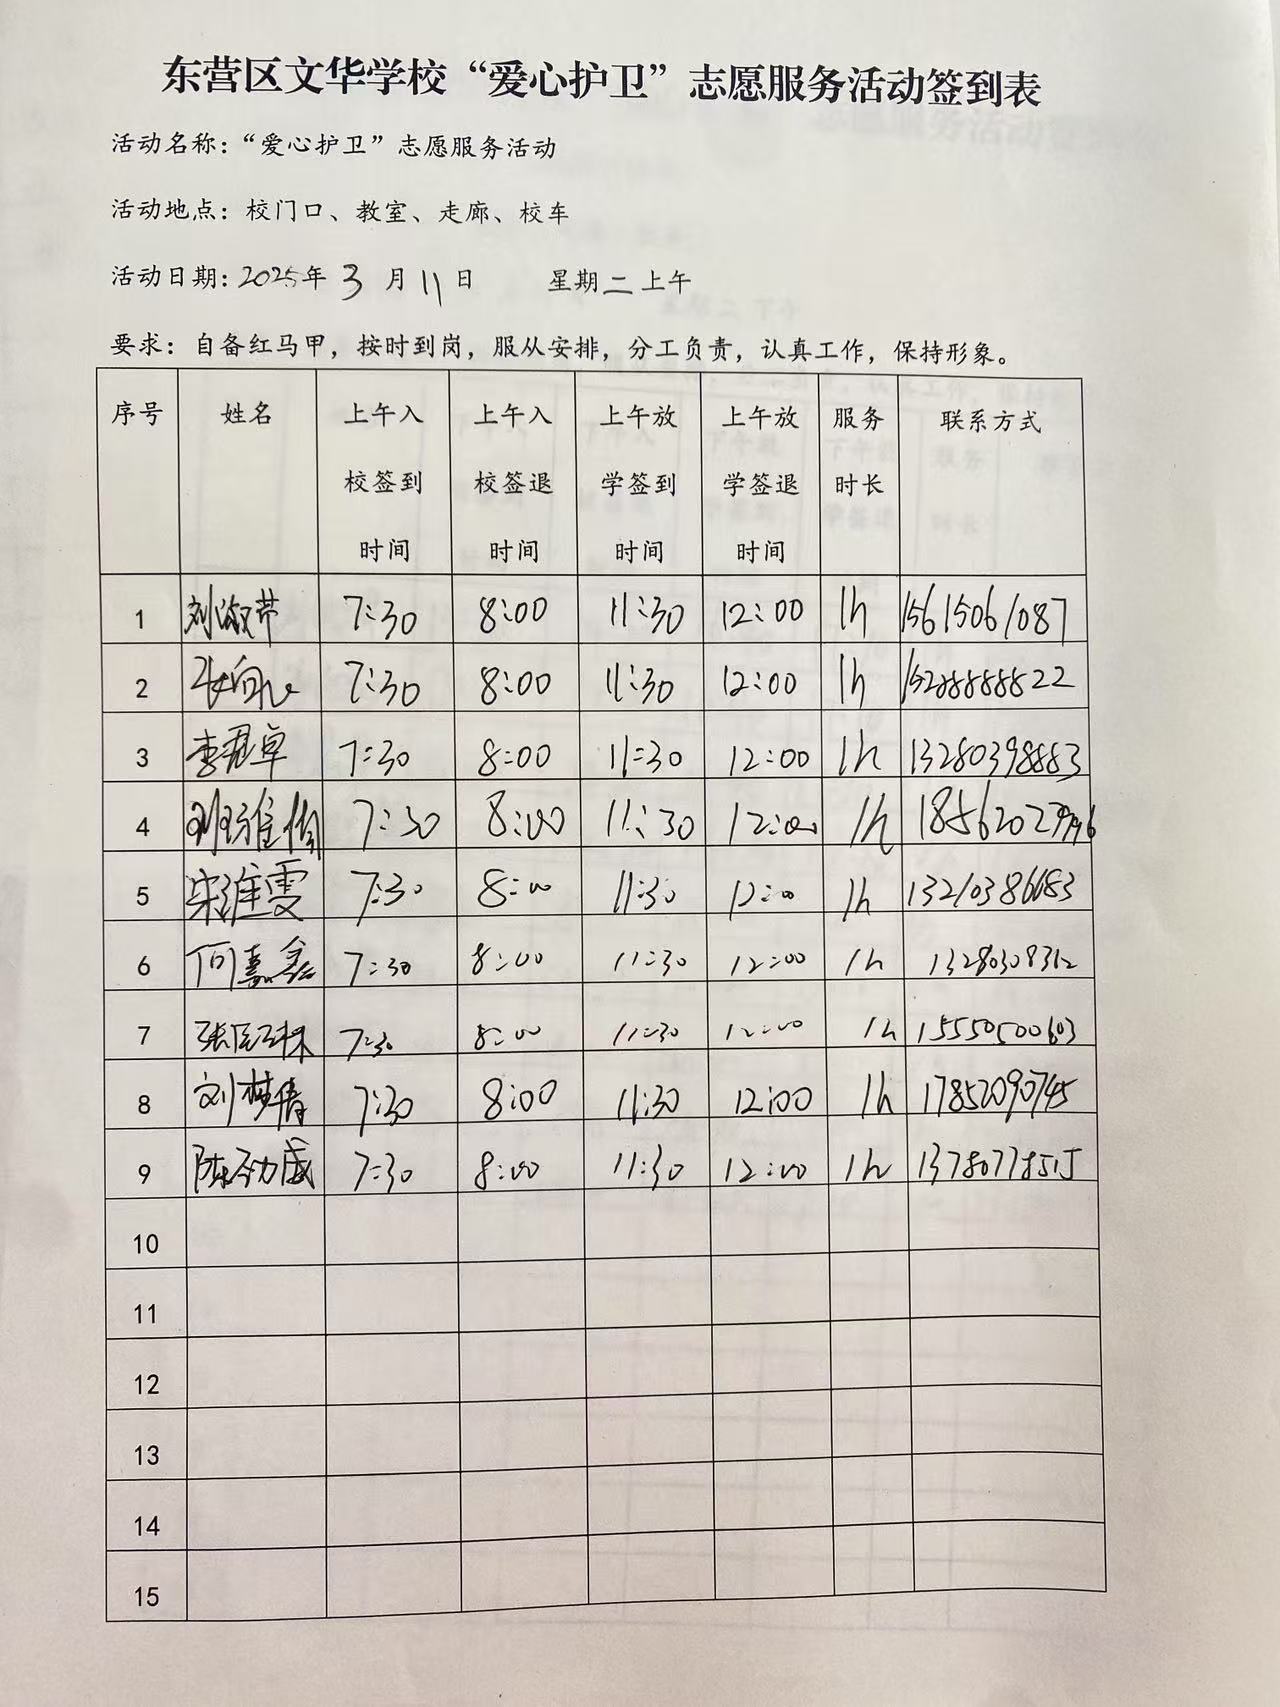 东营区文华学校“爱心护卫”志愿服务活动签到表
活动名称：“爱心护卫”志愿服务活动
活动地点：校门口、教室、走廊、校车
活动日期：2025年3月11日 星期二上午
要求：自备红马甲，按时到岗，服从安排，分工负责，认真工作，保持形象。
序号 姓名 上午入校签到时间 上午入校签退时间 上午放学签到时间 上午放学签退时间 服务时长 联系方式
1 刘淑芹 7:30 8:00 11:30 12:00 1h 15615061087
2 7:30 8:00 11:30 12:00 1h 15288888822
3 李君卓 7:30 8:00 11:30 12:00 1h 13280398883
4 7:30 8:00 11:30 12:00 1h
5 宋维雯 7:30 8:00 11:30 12:00 1h 13210386683
6 何嘉鑫 7:30 8:00 11:30 12:00 1h 13280308312
7 7:30 8:00 11:30 12:00 1h 15550500603
8 刘梦倩 7:30 8:00 11:30 12:00 1h 17852090745
9 陈劲威 7:30 8:00 11:30 12:00 1h 13780778515
10
11
12
13
14
15